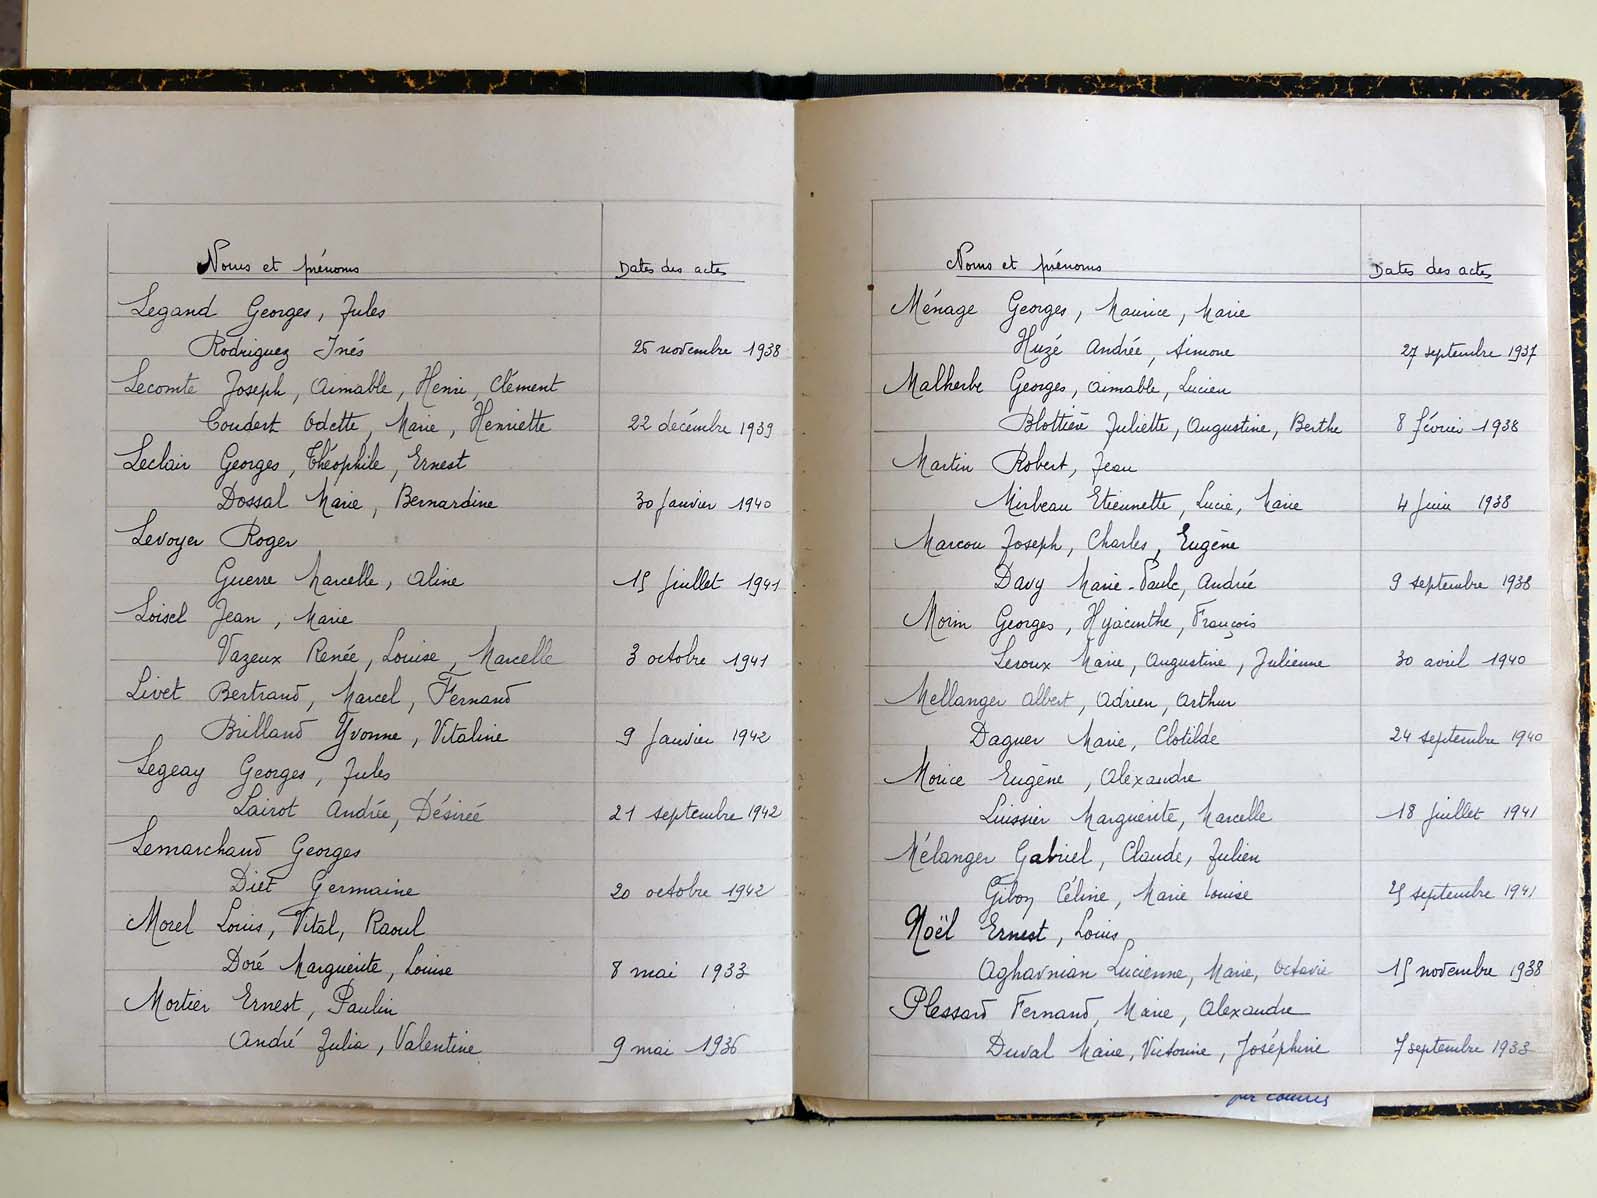 Noms et prénoms Dates des actes
Legand Georges, Jules
Rodriguez Inés 26 novembre 1938
Lecomte Joseph, Aimable, Henri, Clément
Coudert Odette, Marie, Henriette 22 décembre 1939
Leclair Georges, Théophile, Ernest
Dossal Marie, Bernardine 30 Janvier 1940
Levoyer Roger
Guerre Marcelle, Aline 15 Juillet 1941
Loisel Jean, Marie
Vazeux Renée, Louise, Marcelle 3 octobre 1941
Livet Bertrand, Marcel, Fernand
Brilland Yvonne, Vitaline 9 Janvier 1942
Legeay Georges, Jules
Lairot Andrée, Désirée 21 septembre 1942
Lemarchand Georges
Diet Germaine 20 octobre 1942
Morel Louis, Vital, Raoul
Doré Marguerite, Louise 8 mai 1933
Mortier Ernest, Paulin
André Julia, Valentine 9 mai 1936
Noms et prénoms Dates des actes
Ménage Georges, Maurice, Marie
Huzé Andrée, Simone 27 septembre 1937
Malherbe Georges, Aimable, Lucien
Blottière Juliette, Augustine, Berthe 8 février 1938
Martin Robert, Jean
Mirbeau Etiennette, Lucie, Marie 4 Juin 1938
Marcou Joseph, Charles, Eugène
Davy Marie-Paule, Andrée 9 septembre 1938
Morin Georges, Hyacinthe, François
Leroux Marie, Augustine, Julienne 30 avril 1940
Mellanger Albert, Adrien, Arthur
Daguer Marie, Clotilde 24 septembre 1940
Morice Eugène, Alexandre
Luissier Marguerite, Marcelle 18 Juillet 1941
Mélanger Gabriel, Claude, Julien
Gibon Céline, Marie Louise 25 septembre 1941
Noël Ernest, Louis
Aghavnian Lucienne, Marie, Octavie 15 novembre 1938
Plessard Fernand, Marie, Alexandre
Duval Marie, Victorine, Joséphine 7 septembre 1933